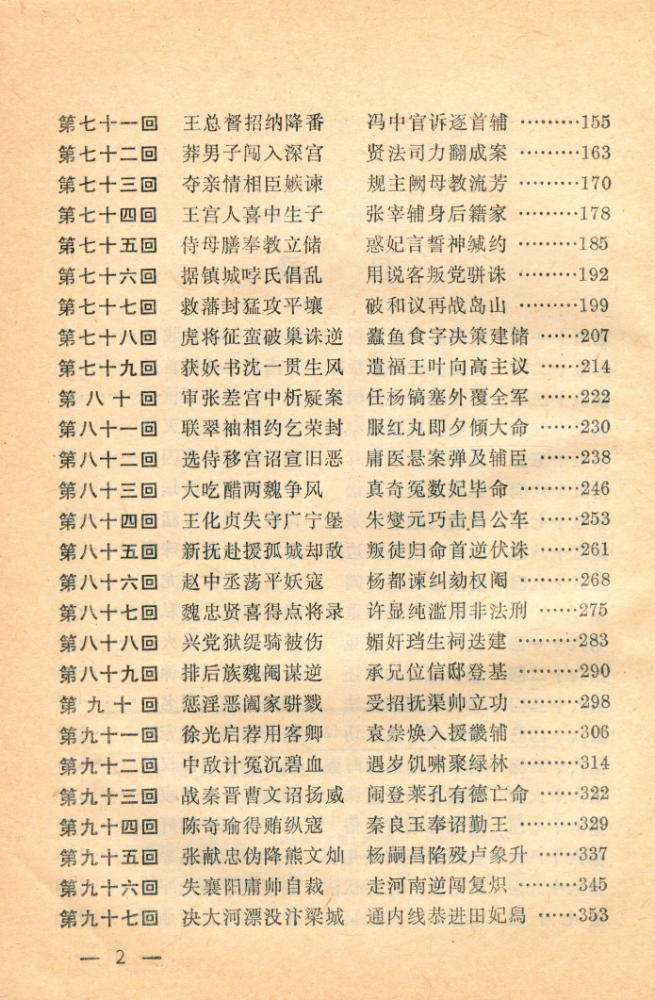 第七十一回 王总督招纳降番 冯中官诉逐首辅 ………155
第七十二回 莽男子闯入深宫 贤法司力翻成案 ………163
第七十三回 夺亲情相臣嫉谏 规主阙母教流芳 ………170
第七十四回 王宫人喜中生子 张宰辅身后籍家 ………178
第七十五回 侍母膳奉教立储 惑妃言誓神缄约 ………185
第七十六回 据镇城哱氏倡乱 用说客叛党骈诛 ………192
第七十七回 救藩封猛攻平壤 破和议再战岛山 ………199
第七十八回 虎将征蛮破巢诛逆 蠹鱼食字决策建储 ……207
第七十九回 获妖书沈一贯生风 遣福王叶向高主议 ……214
第八十回 审张差宫中析疑案 任杨镐塞外覆全军 ……222
第八十一回 联翠袖相约乞荣封 服红丸即夕倾大命 ……230
第八十二回 选侍移宫诏宣旧恶 庸医悬案弹及辅臣 ……238
第八十三回 大吃醋两魏争风 真奇冤数妃毕命 ………246
第八十四回 王化贞失守广宁堡 朱燮元巧击吕公车 ……253
第八十五回 新抚赴援孤城却敌 叛徒归命首逆伏诛 ……261
第八十六回 赵中丞荡平妖寇 杨都谏纠劾权阉 ………268
第八十七回 魏忠贤喜得点将录 许显纯滥用非法刑 ……275
第八十八回 兴党狱缇骑被伤 媚奸珰生祠迭建 ………283
第八十九回 排后族魏阉谋逆 承兄位信邸登基 ………290
第九十回 惩淫恶阖家骈戮 受招抚渠帅立功 ………298
第九十一回 徐光启荐用客卿 袁崇焕入援畿辅 ………306
第九十二回 中敌计冤沉碧血 遇岁饥啸聚绿林 ………314
第九十三回 战秦晋曹文诏扬威 闹登莱孔有德亡命 ……322
第九十四回 陈奇瑜得贿纵寇 秦良玉奉诏勤王 ………329
第九十五回 张献忠伪降熊文灿 杨嗣昌陷殁卢象升 ……337
第九十六回 失襄阳庸帅自裁 走河南逆闯复炽 ………345
第九十七回 决大河漂没汴梁城 通内线恭进田妃舄 ……353
— 2 —